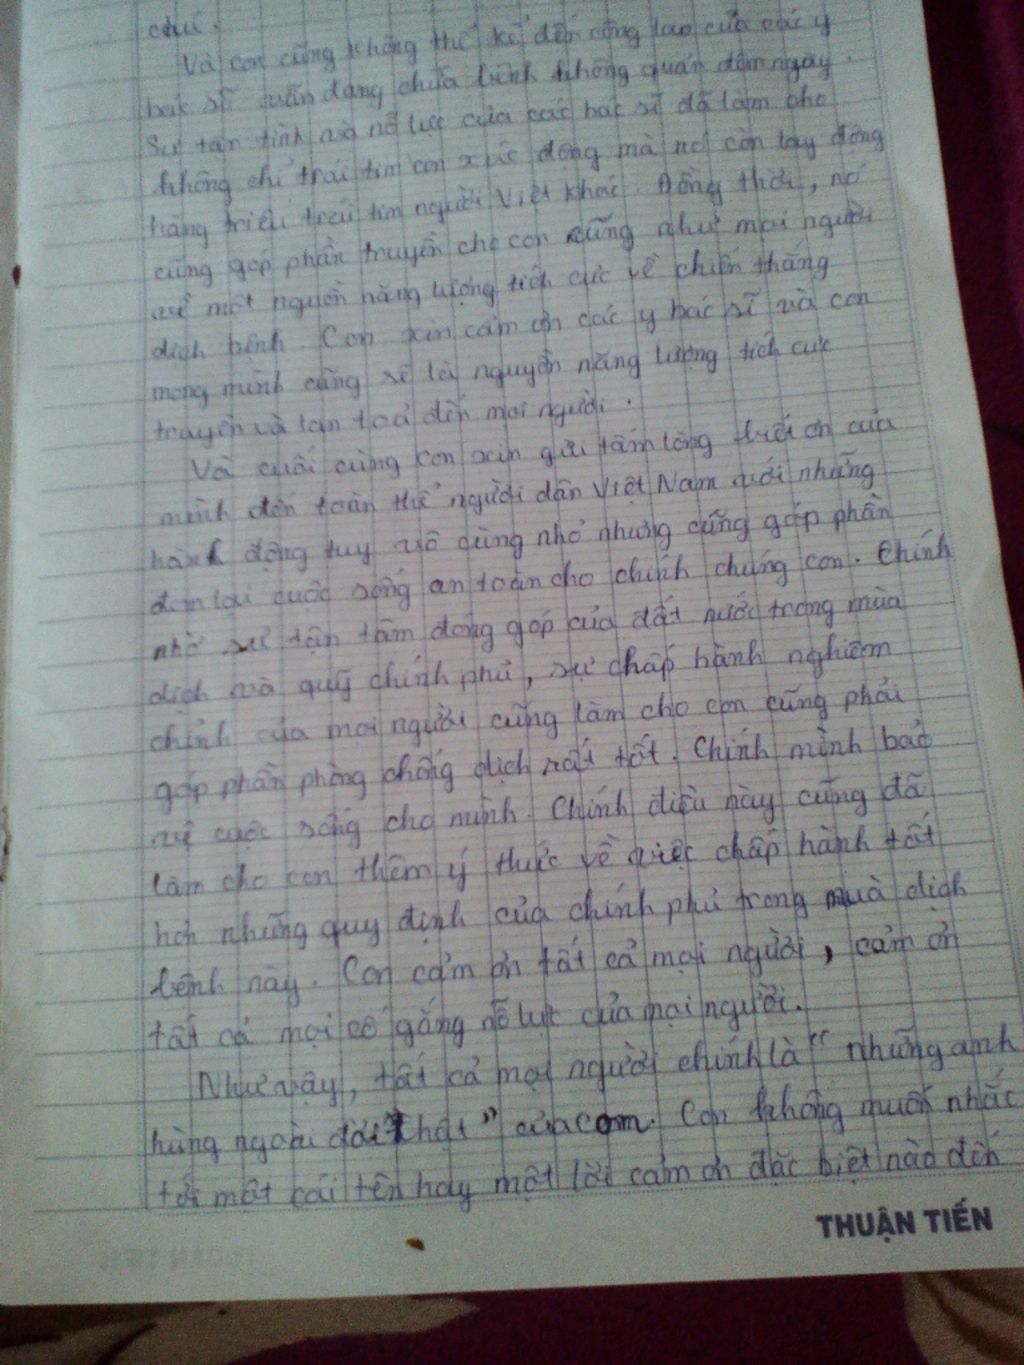 chú.
Và con cũng không thể kể đến công lao của các y
bác sĩ vẫn đang chữa bệnh không quản đêm ngày.
Sự tận tình và nỗ lực của các bác sĩ đã làm cho
không chỉ trái tim con xúc động mà nó còn lay động
hàng triệu trái tim người Việt khác. Đồng thời, nó
cũng góp phần truyền cho con cũng như mọi người
về một nguồn năng lượng tích cực về chiến thắng
dịch bệnh. Con xin cảm ơn các y bác sĩ và con
mong mình cũng sẽ là nguyồn năng lượng tích cực
truyền và lan toả đến mọi người.
Và cuối cùng con xin gửi tấm lòng biết ơn của
mình đến toàn thể người dân Việt Nam với những
hành động tuy vô cùng nhỏ nhưng cũng góp phần
đem lại cuộc sống an toàn cho chính chúng con. Chính
nhờ sự tận tâm đóng góp của đất nước trong mùa
dịch và quỹ chính phủ, sự chấp hành nghiêm
chỉnh của mọi người cũng làm cho con cũng phải
góp phần phòng chống dịch rất tốt. Chính mình bảo
vệ cuộc sống cho mình. Chính điều này cũng đã
làm cho con thêm ý thức về việc chấp hành tốt
hơn những quy định của chính phủ trong mùa dịch
bệnh này. Con cảm ơn tất cả mọi người, cảm ơn
tất cả mọi cố gắng nỗ lực của mọi người.
Như vậy, tất cả mọi người chính là "những anh
hùng ngoài đời thật" của con. Con không muốn nhắc
tới một cái tên hay một lời cảm ơn đặc biệt nào đến
THUẬN TIẾN